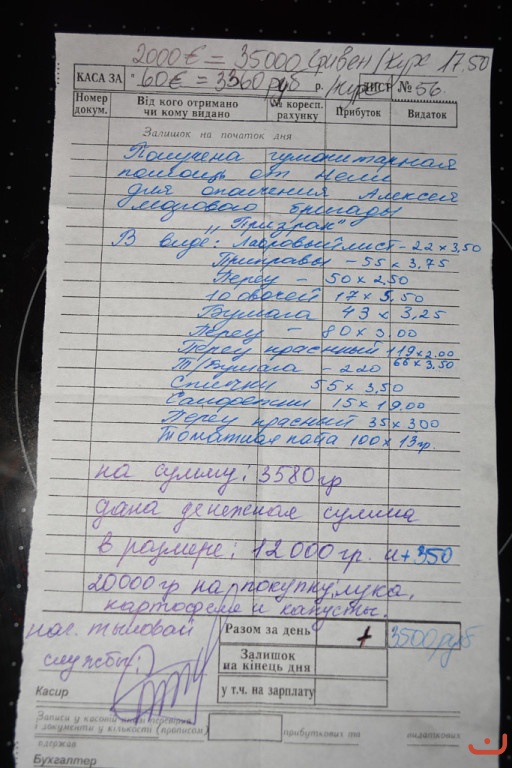 2000€ = 35000 Гривен / Курс 17.50
КАСА ЗА " 60€ = 3360 руб р. / Курс ЛИСТ № 56.
Номер докум. Від кого отримано чи кому видано № коресп. рахунку Прибуток Видаток
Залишок на початок дня
Получена гуманитарная
помощь от Нели
для ополчения Алексея
Мозгового бригады
"Призрак"
В виде: Лавровый лист - 22 х 3,50
Приправы - 55 х 3,75
Перец - 50 х 2,50
10 овощей 17 х 5,50
Бумага 43 х 3,25
Перец - 80 х 3.00
Перец красный 119 х 2.00
Т/Бумага - 220 66 х 3,50
Спички 55 х 3,50
Салфетки 15 х 19,00
Перец красный 35 х 300
Томатная паста 100 х 13 гр.
на сумму: 3580 гр
дана денежная сумма
в размере: 12000 гр. и + 350
20000 гр на покупку лука,
картофеля и капусты.
нач. тыловой
службы:
Разом за день + 3500 руб
Залишок на кінець дня
у т.ч. на зарплату
Касир
Записи у касовій книзі перевірив
і документи у кількості (прописом) прибуткових та видаткових
одержав
Бухгалтер